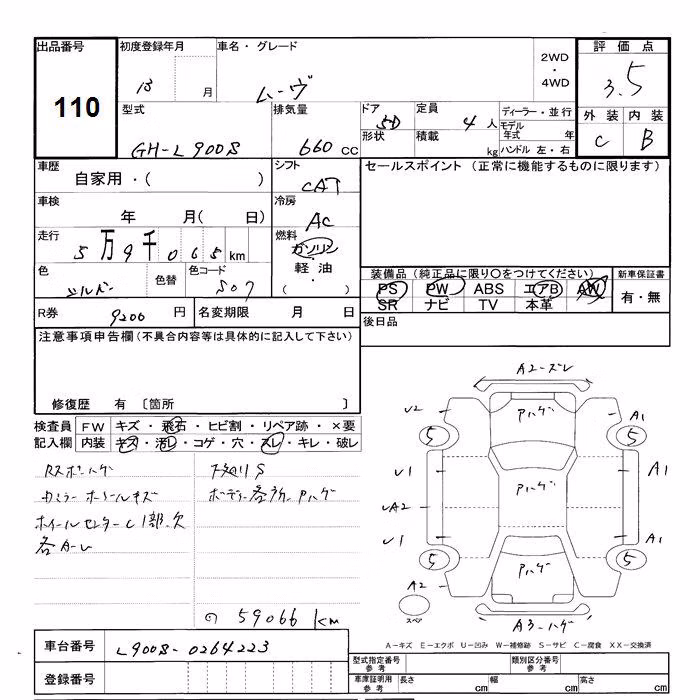 出品番号 110
初度登録年月 13 月
車名・グレード ムーヴ
2WD ・ 4WD
評価点 3.5
外装 C 内装 B
型式 GH-L900S
排気量 660 cc
ドア 5D
形状
定員 4 人
積載 kg
ディーラー・並行
モデル年式 年
ハンドル 左・右
車歴 自家用・( )
シフト CAT
車検 年 月( 日)
冷房 AC
走行 5万9千065km
燃料 ガソリン 軽油 ・ ( )
色 シルバー
色替
色コード S07
R券 9200 円
名変期限 月 日
セールスポイント (正常に機能するものに限ります)
装備品(純正品に限り○をつけてください)
PS PW ABS エアB AW
SR ナビ TV 本革
新車保証書 有・無
後日品
注意事項申告欄(不具合内容等は具体的に記入して下さい)
修復歴 有 〔箇所 〕
検査員記入欄
FW キズ・飛石・ヒビ割・リペア跡・×要
内装 キズ・汚レ・コゲ・穴・スレ・キレ・破レ
ホイールセンターC1部欠
各Aーレ
下廻りS
ボデー各所Pハゲ
59066km
A2ーズレ
Pハゲ
U2
A1
5
5
U1
A1
Pハゲ
UA2
U1
A1
5
5
Pハゲ
A2
スペア
A3ーハゲ
A-キズ E-エクボ U-凹み W-補修跡 S-サビ C-腐食 XX-交換済
車台番号 L900S-0264223
登録番号
型式指定番号 参考
類別区分番号 参考
車庫証明用 参考 長さ cm 幅 cm 高さ cm